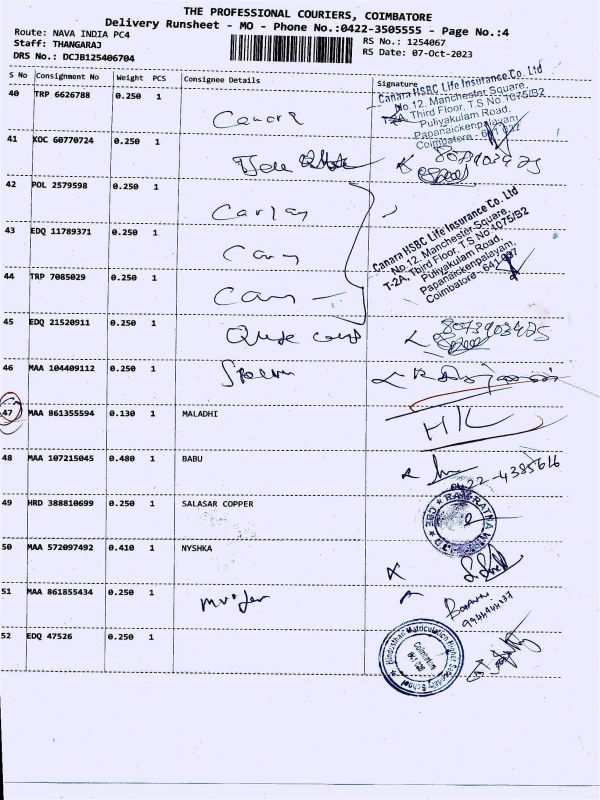 THE PROFESSIONAL COURIERS, COIMBATORE
Delivery Runsheet - MO - Phone No.:0422-3505555 - Page No.:4
Route: NAVA INDIA PC4
Staff: THANGARAJ
DRS No.: DCJB125406704
RS No.: 1254067
RS Date: 07-Oct-2023
S No Consignment No Weight PCS Consignee Details Signature
40 TRP 6626788 0.250 1
Canara HSBC Life Insurance Co. Ltd
No 12, Manchester Square,
T-2A, Third Floor, T.S No 1075/B2
Puliyakulam Road,
Papanaickenpalayam,
Coimbatore - 641 037
41 KOC 60770724 0.250 1
8073903425
42 POL 2579598 0.250 1
43 EDQ 11789371 0.250 1
Canara HSBC Life Insurance Co. Ltd
No 12, Manchester Square,
T-2A, Third Floor, T.S No 1075/B2
Puliyakulam Road,
Papanaickenpalayam,
Coimbatore - 641 037
44 TRP 7085029 0.250 1
45 EDQ 21520911 0.250 1
8073903425
46 MAA 104409112 0.250 1
47 MAA 861355594 0.130 1 MALADHI
48 MAA 107215045 0.480 1 BABU
22-4385616
49 HRD 388810699 0.250 1 SALASAR COPPER
RAM RATNA
CBE
50 MAA 572097492 0.410 1 NYSHKA
51 MAA 861855434 0.250 1
52 EDQ 47526 0.250 1
Hindusthan Matriculation Higher Secondary School
Coimbatore